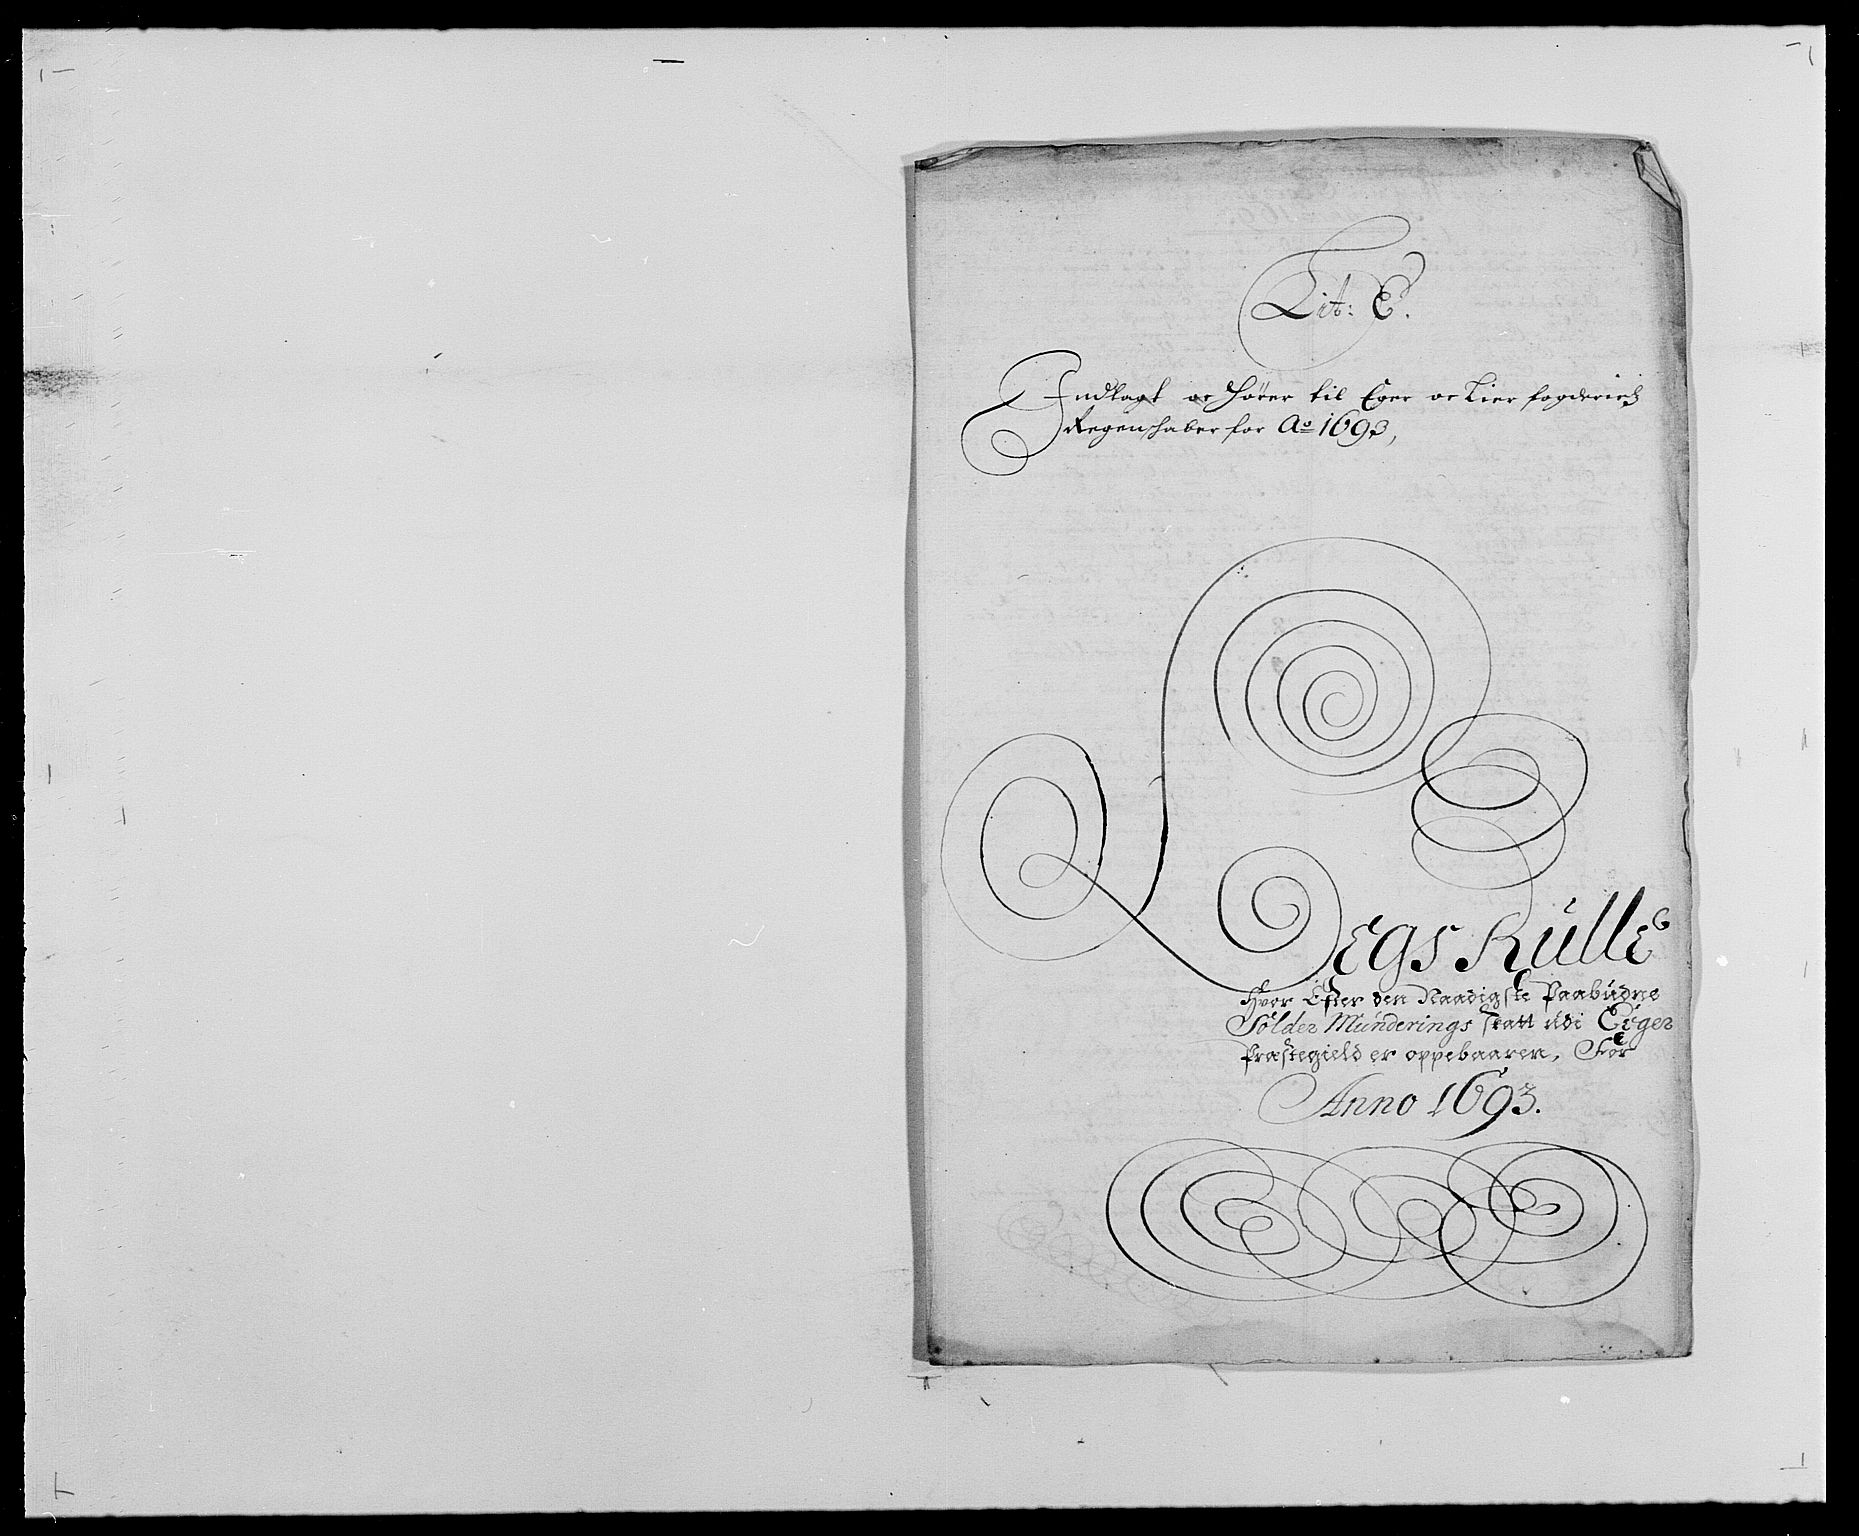 Lit: E.
Indlagt oc hörer til Eger oc Lier fogderies
Regenschaber for Ao 1693,
Legs Rülle
Hvor Efter den Naadigste Paabüdne
Solder Münderings skatt üdi Eeger
Præstegield er oppebaaren, For
Anno 1693.